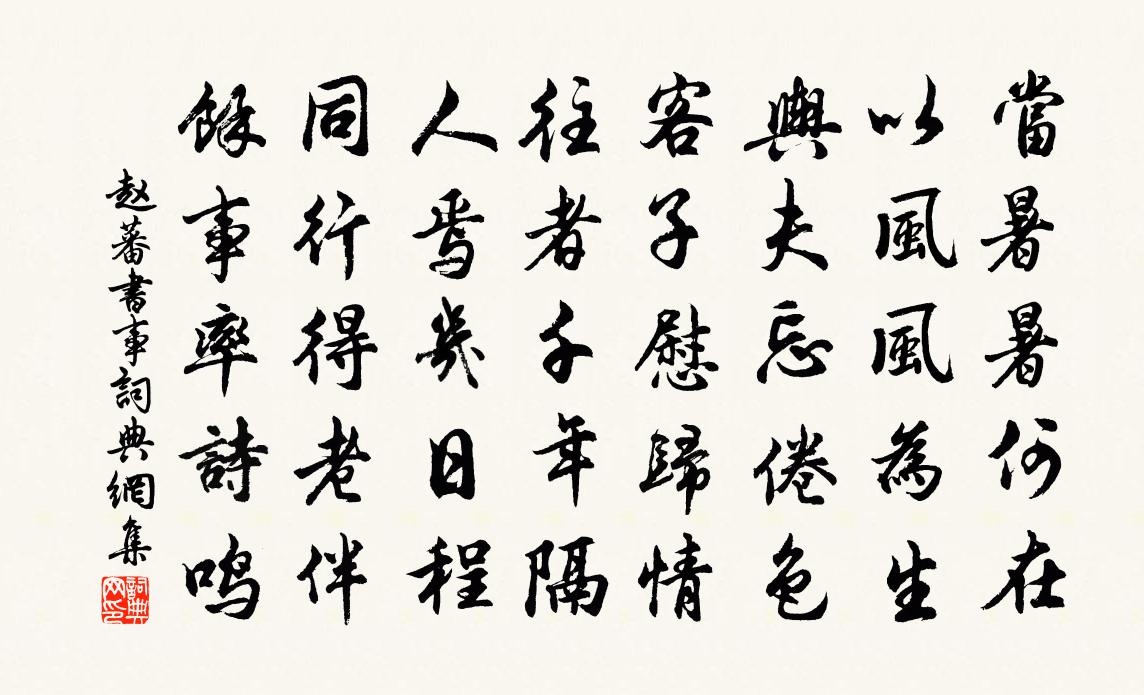 當暑暑何在
以風風為生
輿夫忘倦色
客子慰歸情
往者千年隔
人焉幾日程
同行得老伴
餘事率詩鳴
赵蕃書事詞典網集
詞典網印